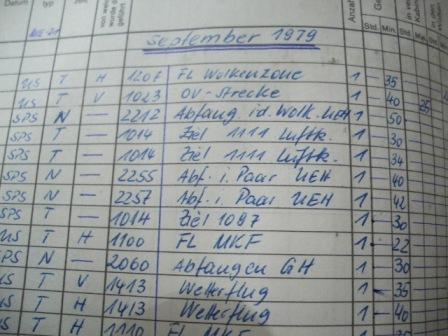 Datum typ Anzahl Std. Min. Std. Min.
September 1979
US T H 1207 FL Wolkenzone 1 35
US T V 1023 OV-Strecke 1 40 25
SPS N — 2212 Abfang i.d. Wolk. UEH 1 50
SPS T — 1014 Ziel 1111 Luftk. 1 30
SPS T — 1014 Ziel 1111 Luftk. 1 34
SPS N — 2255 Abf. i. Paar UEH 1 40
SPS N — 2257 Abf. i. Paar UEH 1 42
SPS T — 1014 Ziel 1087 1 30
US T H 1100 FL MKF 1 22
SPS N — 2060 Abfangen GH 1 30
US T V 1413 Wetterflug 1 35
US T H 1413 Wetterflug 1 40
US T H 1110 FL MKF